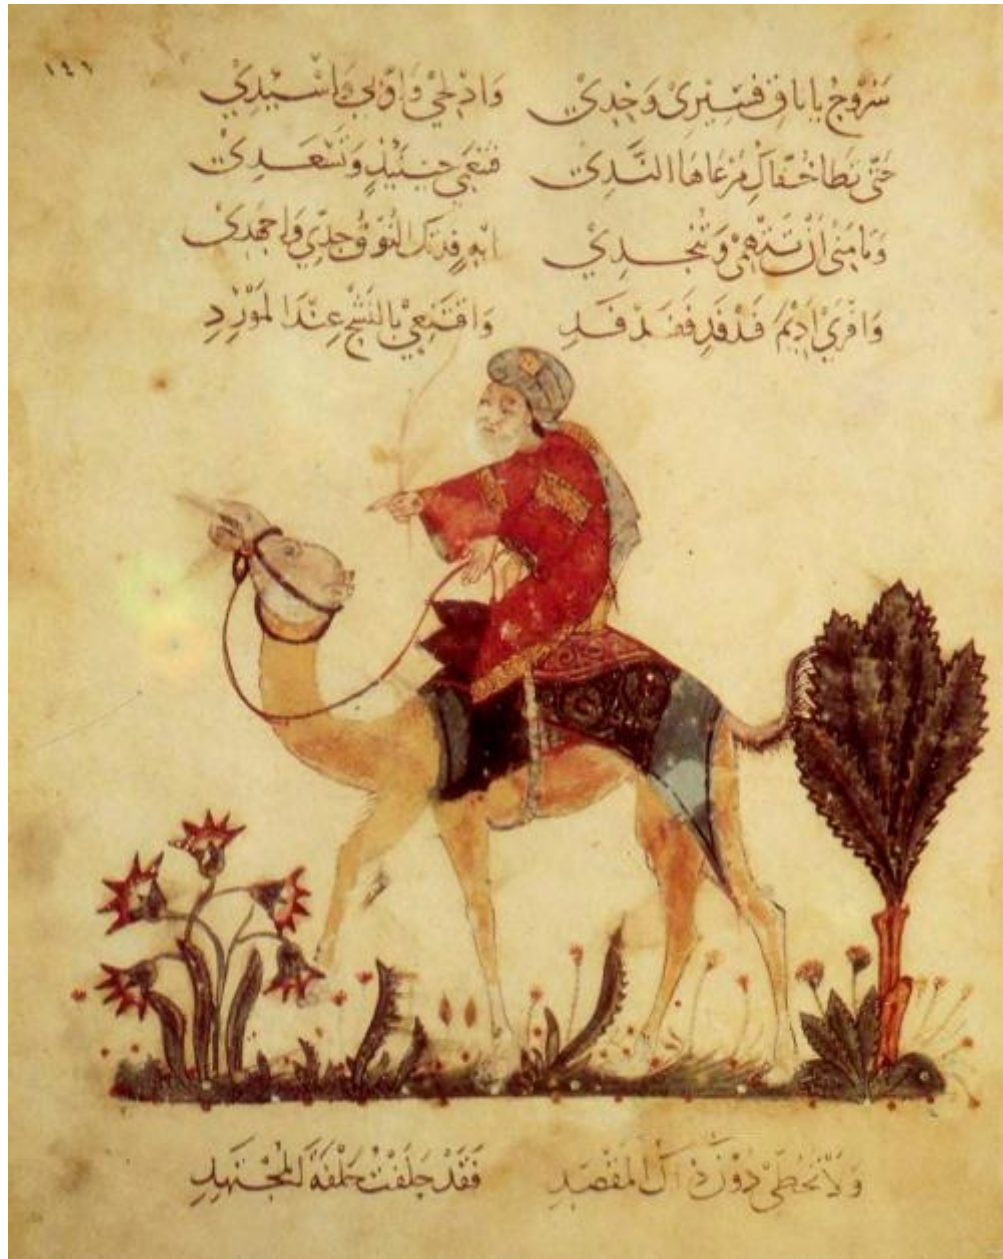 ١٤١
سَرُوجُ يَا نَاقُ فَسِيرِي وَخِدِي وَادْلِجِي وَاوِّبِي وَاسْئِدِي
حَتَّى تَطَا خُفَّاكِ مَرْعَاهَا النَّدِي فَتَنْعَمِي حِينَئِذٍ وَتَسْعَدِي
وَتَامَنِي اَنْ تُتْهِمِي وَتُنْجِدِي اِيهٍ فِدَتْكِ النُّوقُ جِدِّي وَاجْهَدِي
وَافْرِي اَدِيمَ فَدْفَدٍ فَفَدْفَدِ وَاقْتَنِعِي بِالنَّشْحِ عِنْدَ الْمَوْرِدِ
وَلَا تَحُطِّي دُوْنَ ذَاكَ الْمَقْصَدِ فَقَدْ حَلَفْتُ حَلْفَةَ الْمُجْتَهِدِ